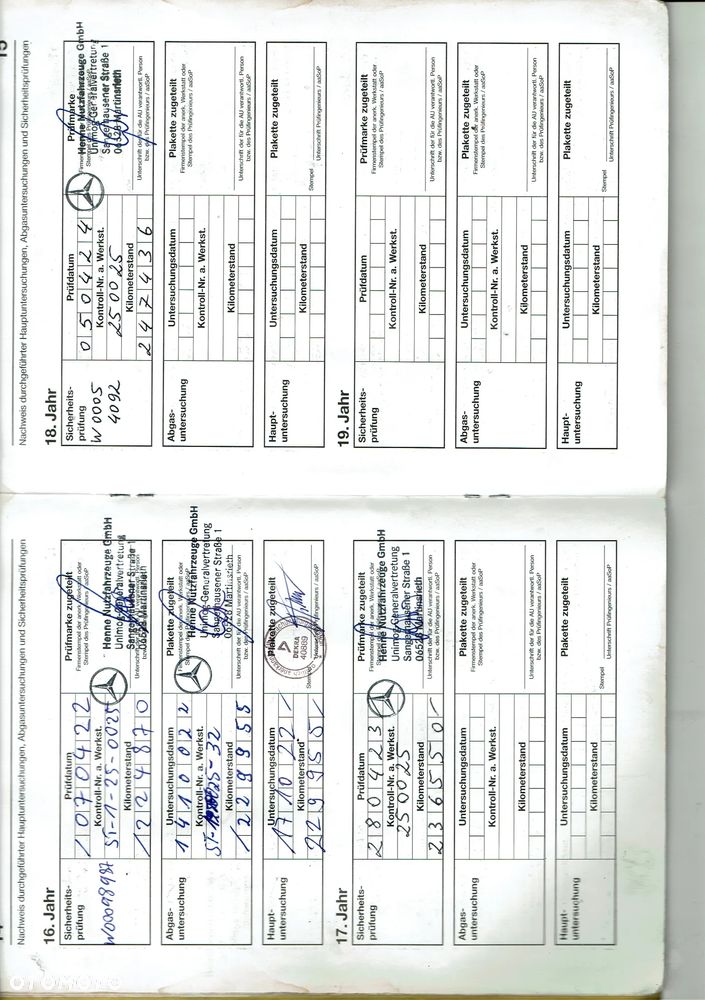 Nachweis durchgeführter Hauptuntersuchungen, Abgasuntersuchungen und Sicherheitsprüfungen
16. Jahr
Sicherheits-
prüfung
W00098987
Prüfdatum
070422
Kontroll-Nr. a. Werkst.
ST-1-25-0025
Kilometerstand
224870
Prüfmarke zugeteilt
Firmenstempel der anerk. Werkstatt oder
Stempel des Prüfingenieurs / aaSoP
Henne Nutzfahrzeuge GmbH
Unimog-Generalvertretung
Sangerhausener Straße 1
06528 Martinsrieth
Unterschrift der für die AU verantwortl. Person
bzw. des Prüfingenieurs / aaSoP
Abgas-
untersuchung
Untersuchungsdatum
141022
Kontroll-Nr. a. Werkst.
Kilometerstand
229955
Plakette zugeteilt
Firmenstempel der anerk. Werkstatt oder
Stempel des Prüfingenieurs / aaSoP
Henne Nutzfahrzeuge GmbH
Unimog-Generalvertretung
Sangerhausener Straße 1
06528 Martinsrieth
Unterschrift der für die AU verantwortl. Person
bzw. des Prüfingenieurs / aaSoP
Haupt-
untersuchung
Untersuchungsdatum
171022
Kilometerstand
229955
Plakette zugeteilt
DEKRA
40889
Stempel
Unterschrift Prüfingenieurs / aaSoP
17. Jahr
Sicherheits-
prüfung
Prüfdatum
280423
Kontroll-Nr. a. Werkst.
250025
Kilometerstand
236550
Prüfmarke zugeteilt
Firmenstempel der anerk. Werkstatt oder
Stempel des Prüfingenieurs / aaSoP
Henne Nutzfahrzeuge GmbH
Unimog-Generalvertretung
Sangerhausener Straße 1
06528 Martinsrieth
Unterschrift der für die AU verantwortl. Person
bzw. des Prüfingenieurs / aaSoP
Abgas-
untersuchung
Untersuchungsdatum
Kontroll-Nr. a. Werkst.
Kilometerstand
Plakette zugeteilt
Firmenstempel der anerk. Werkstatt oder
Stempel des Prüfingenieurs / aaSoP
Unterschrift der für die AU verantwortl. Person
bzw. des Prüfingenieurs / aaSoP
Haupt-
untersuchung
Untersuchungsdatum
Kilometerstand
Plakette zugeteilt
Stempel
Unterschrift Prüfingenieurs / aaSoP
15
Nachweis durchgeführter Hauptuntersuchungen, Abgasuntersuchungen und Sicherheitsprüfungen
18. Jahr
Sicherheits-
prüfung
W0005
4092
Prüfdatum
050424
Kontroll-Nr. a. Werkst.
250025
Kilometerstand
247436
Prüfmarke
Henne Nutzfahrzeuge GmbH
Unimog-Generalvertretung
Sangerhausener Straße 1
06528 Martinsrieth
Unterschrift der für die AU verantwortl. Person
bzw. des Prüfingenieurs / aaSoP
Abgas-
untersuchung
Untersuchungsdatum
Kontroll-Nr. a. Werkst.
Kilometerstand
Plakette zugeteilt
Firmenstempel der anerk. Werkstatt oder
Stempel des Prüfingenieurs / aaSoP
Unterschrift der für die AU verantwortl. Person
bzw. des Prüfingenieurs / aaSoP
Haupt-
untersuchung
Untersuchungsdatum
Kilometerstand
Plakette zugeteilt
Stempel
Unterschrift Prüfingenieurs / aaSoP
19. Jahr
Sicherheits-
prüfung
Prüfdatum
Kontroll-Nr. a. Werkst.
Kilometerstand
Prüfmarke zugeteilt
Firmenstempel der anerk. Werkstatt oder
Stempel des Prüfingenieurs / aaSoP
Unterschrift der für die AU verantwortl. Person
bzw. des Prüfingenieurs / aaSoP
Abgas-
untersuchung
Untersuchungsdatum
Kontroll-Nr. a. Werkst.
Kilometerstand
Plakette zugeteilt
Firmenstempel der anerk. Werkstatt oder
Stempel des Prüfingenieurs / aaSoP
Unterschrift der für die AU verantwortl. Person
bzw. des Prüfingenieurs / aaSoP
Haupt-
untersuchung
Untersuchungsdatum
Kilometerstand
Plakette zugeteilt
Stempel
Unterschrift Prüfingenieurs / aaSoP
OTOMOTO